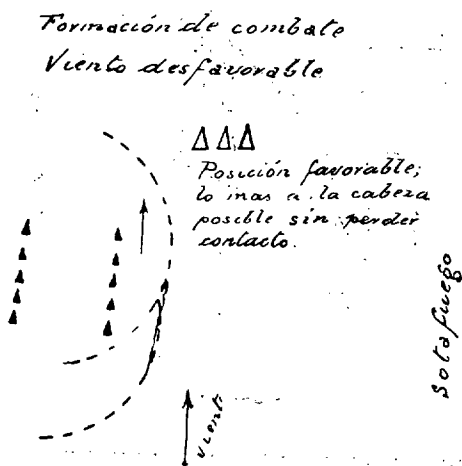 Formación de combate
Viento desfavorable
Posición favorable;
lo mas a la cabeza
posible sin perder
contacto.
Sotafuego
Viento